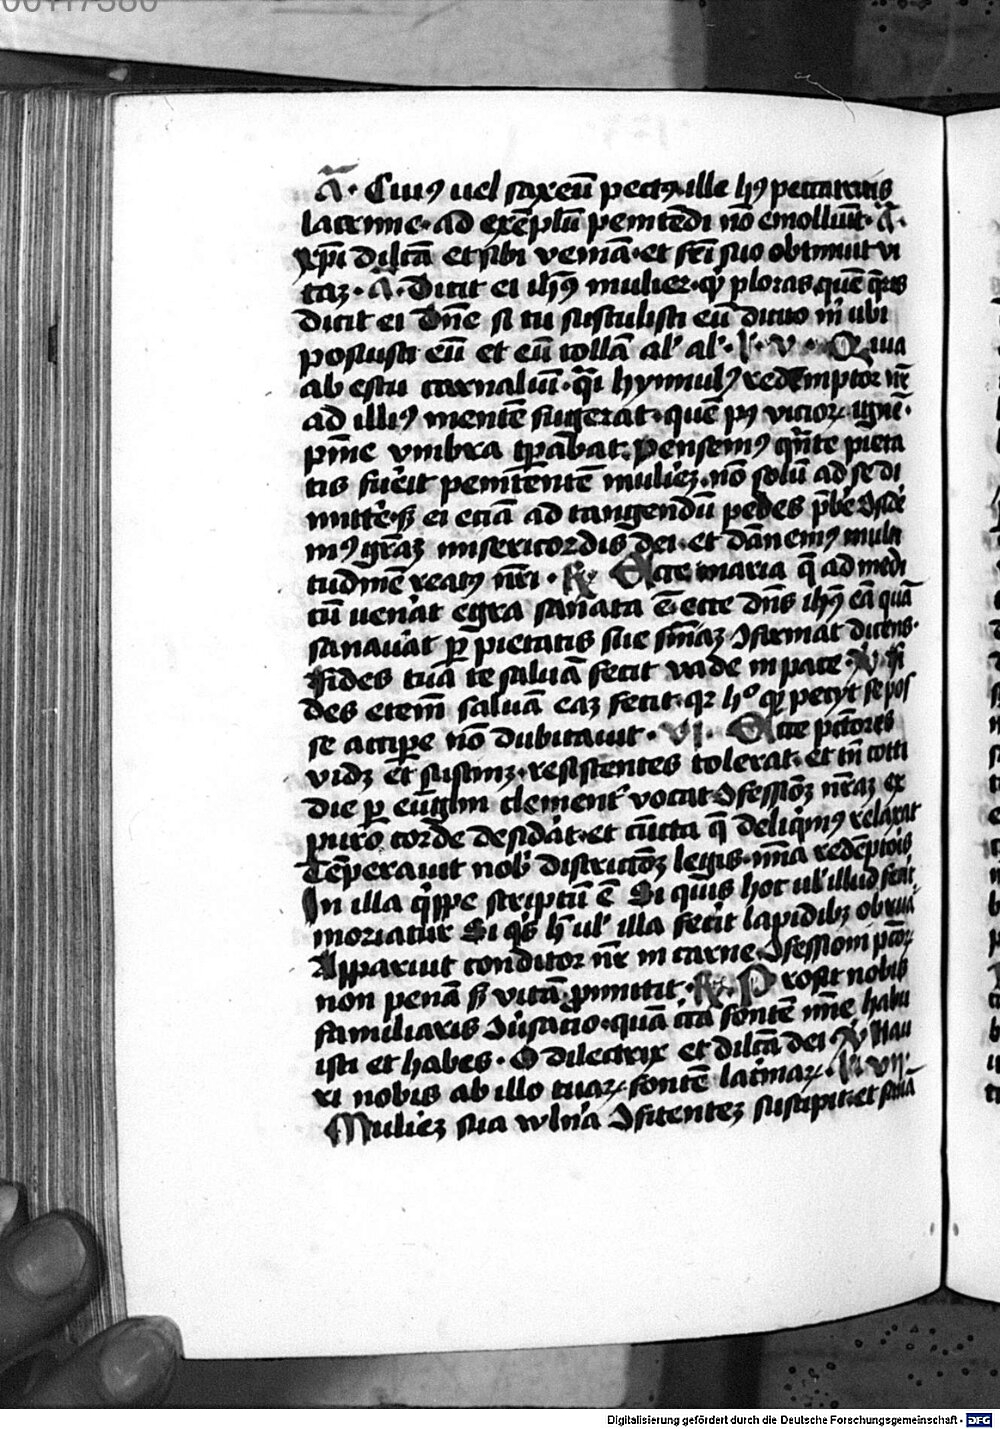 00117380
A̅. Cui9 uel saxeū pect9 ille h9 peccatricis
lacrime. ad exēplū penitēdi nō emolliūt. A̅.
xp̄i dilc̄ā et sibi veniā. et fr̄i suo obtinuit vi
taz. A̅. Dicit ei ih̄9 mulier. qͥd ploras quē q̄ris
dicit ei Dn̄e si tu sustulisti eū dicito mͥ ubi
posuisti eū et eū tollā alꝰ alꝰ. l. v. Quia
ab estu carnaliū. q̄i hynnul9 redemptor nr̄
ad illi9 mentē
pm̄e vmbra tp̄abat. Pensem9 qn̄te pieta
tis fuit penitentē muliez. nō solū ad se di
mitte. sꝫ ei eciā ad tangendū pedes p̄be. Ɔside
m9 gr̄az misericordis dei. et dānem9 multi
tudinē reat9 nr̄i. R̸ Ecce maria q̄ ad medi
cū uenāt egra sanata ē. ecce dn̄s ih̄9 eā quā
sanauāt ꝑ pietatis sue sn̄iaz Ɔfirmat dicens.
Fides tua te saluā fecit vade in pace. V̸ Fi
des etem̄ saluā eaz fecit. qꝛ hͦ qͩ petyt se pos
se accipe nō dubitauit. VI. Ecce pc̄tores
vidꝫ et sustinꝫ. resistentes tolerat. et tn̄ cotti
die ꝑ eūg̅lm clementꝰ vocat Ɔfessiōꝫ nr̄az ex
puro corde desidāt. et cūcta q̄ deliqͥm9 relaxat
Tēperauit nobꝰ districtōꝫ legis. mīa redēptoris
In illa qͥppe scriptū ē Si quis hoc ulꝰ illud fecit
moriatur Si qͥs h̄ ulꝰ illa fecit lapidibꝫ obrua
Apparuit conditor nr̄ in carne. Ɔfessioni pc̄oꝝ
non penā sꝫ vitā ꝓmittit. R̸. Prosit nobis
familiaris Ɔūsatio. quā cͣ fontē mīe habu
isti et habes. O dilectrix et dilc̄ā dei V̸ Hau
ri nobis ab illo tuaꝝ fontē lac̄maꝝ. l. VII.
Muliez sua wln̄a Ɔfitentez suscipit. et sanā
Digitalisierung gefördert durch die Deutsche Forschungsgemeinschaft - DFG